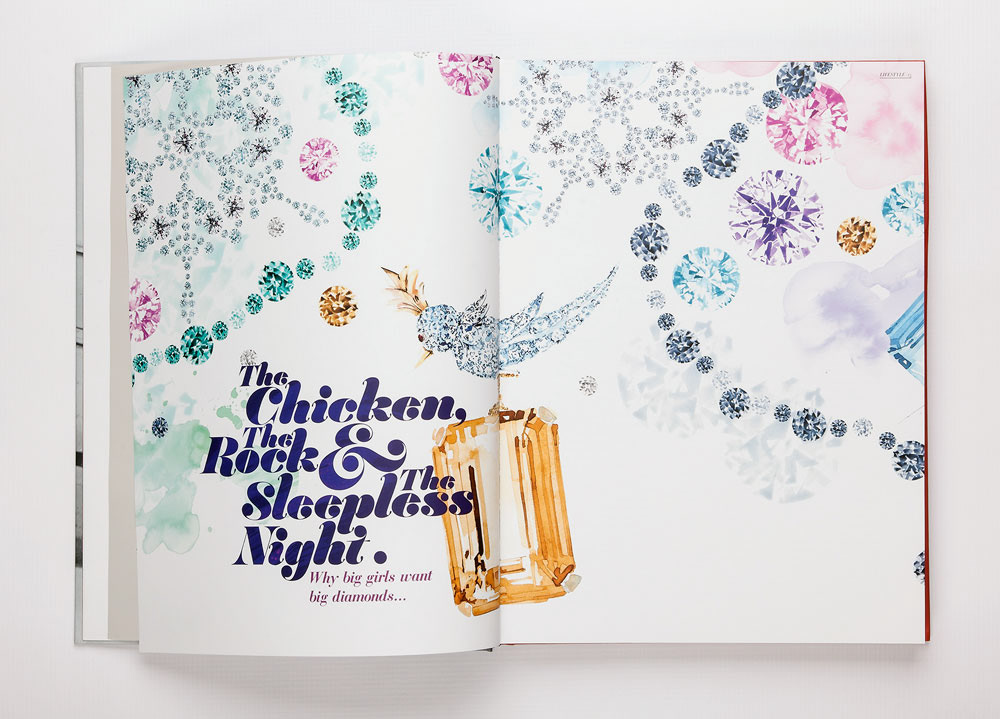 LIFESTYLE
The
Chicken,
The
Rock &
The
Sleepless
Night.
Why big girls want
big diamonds...